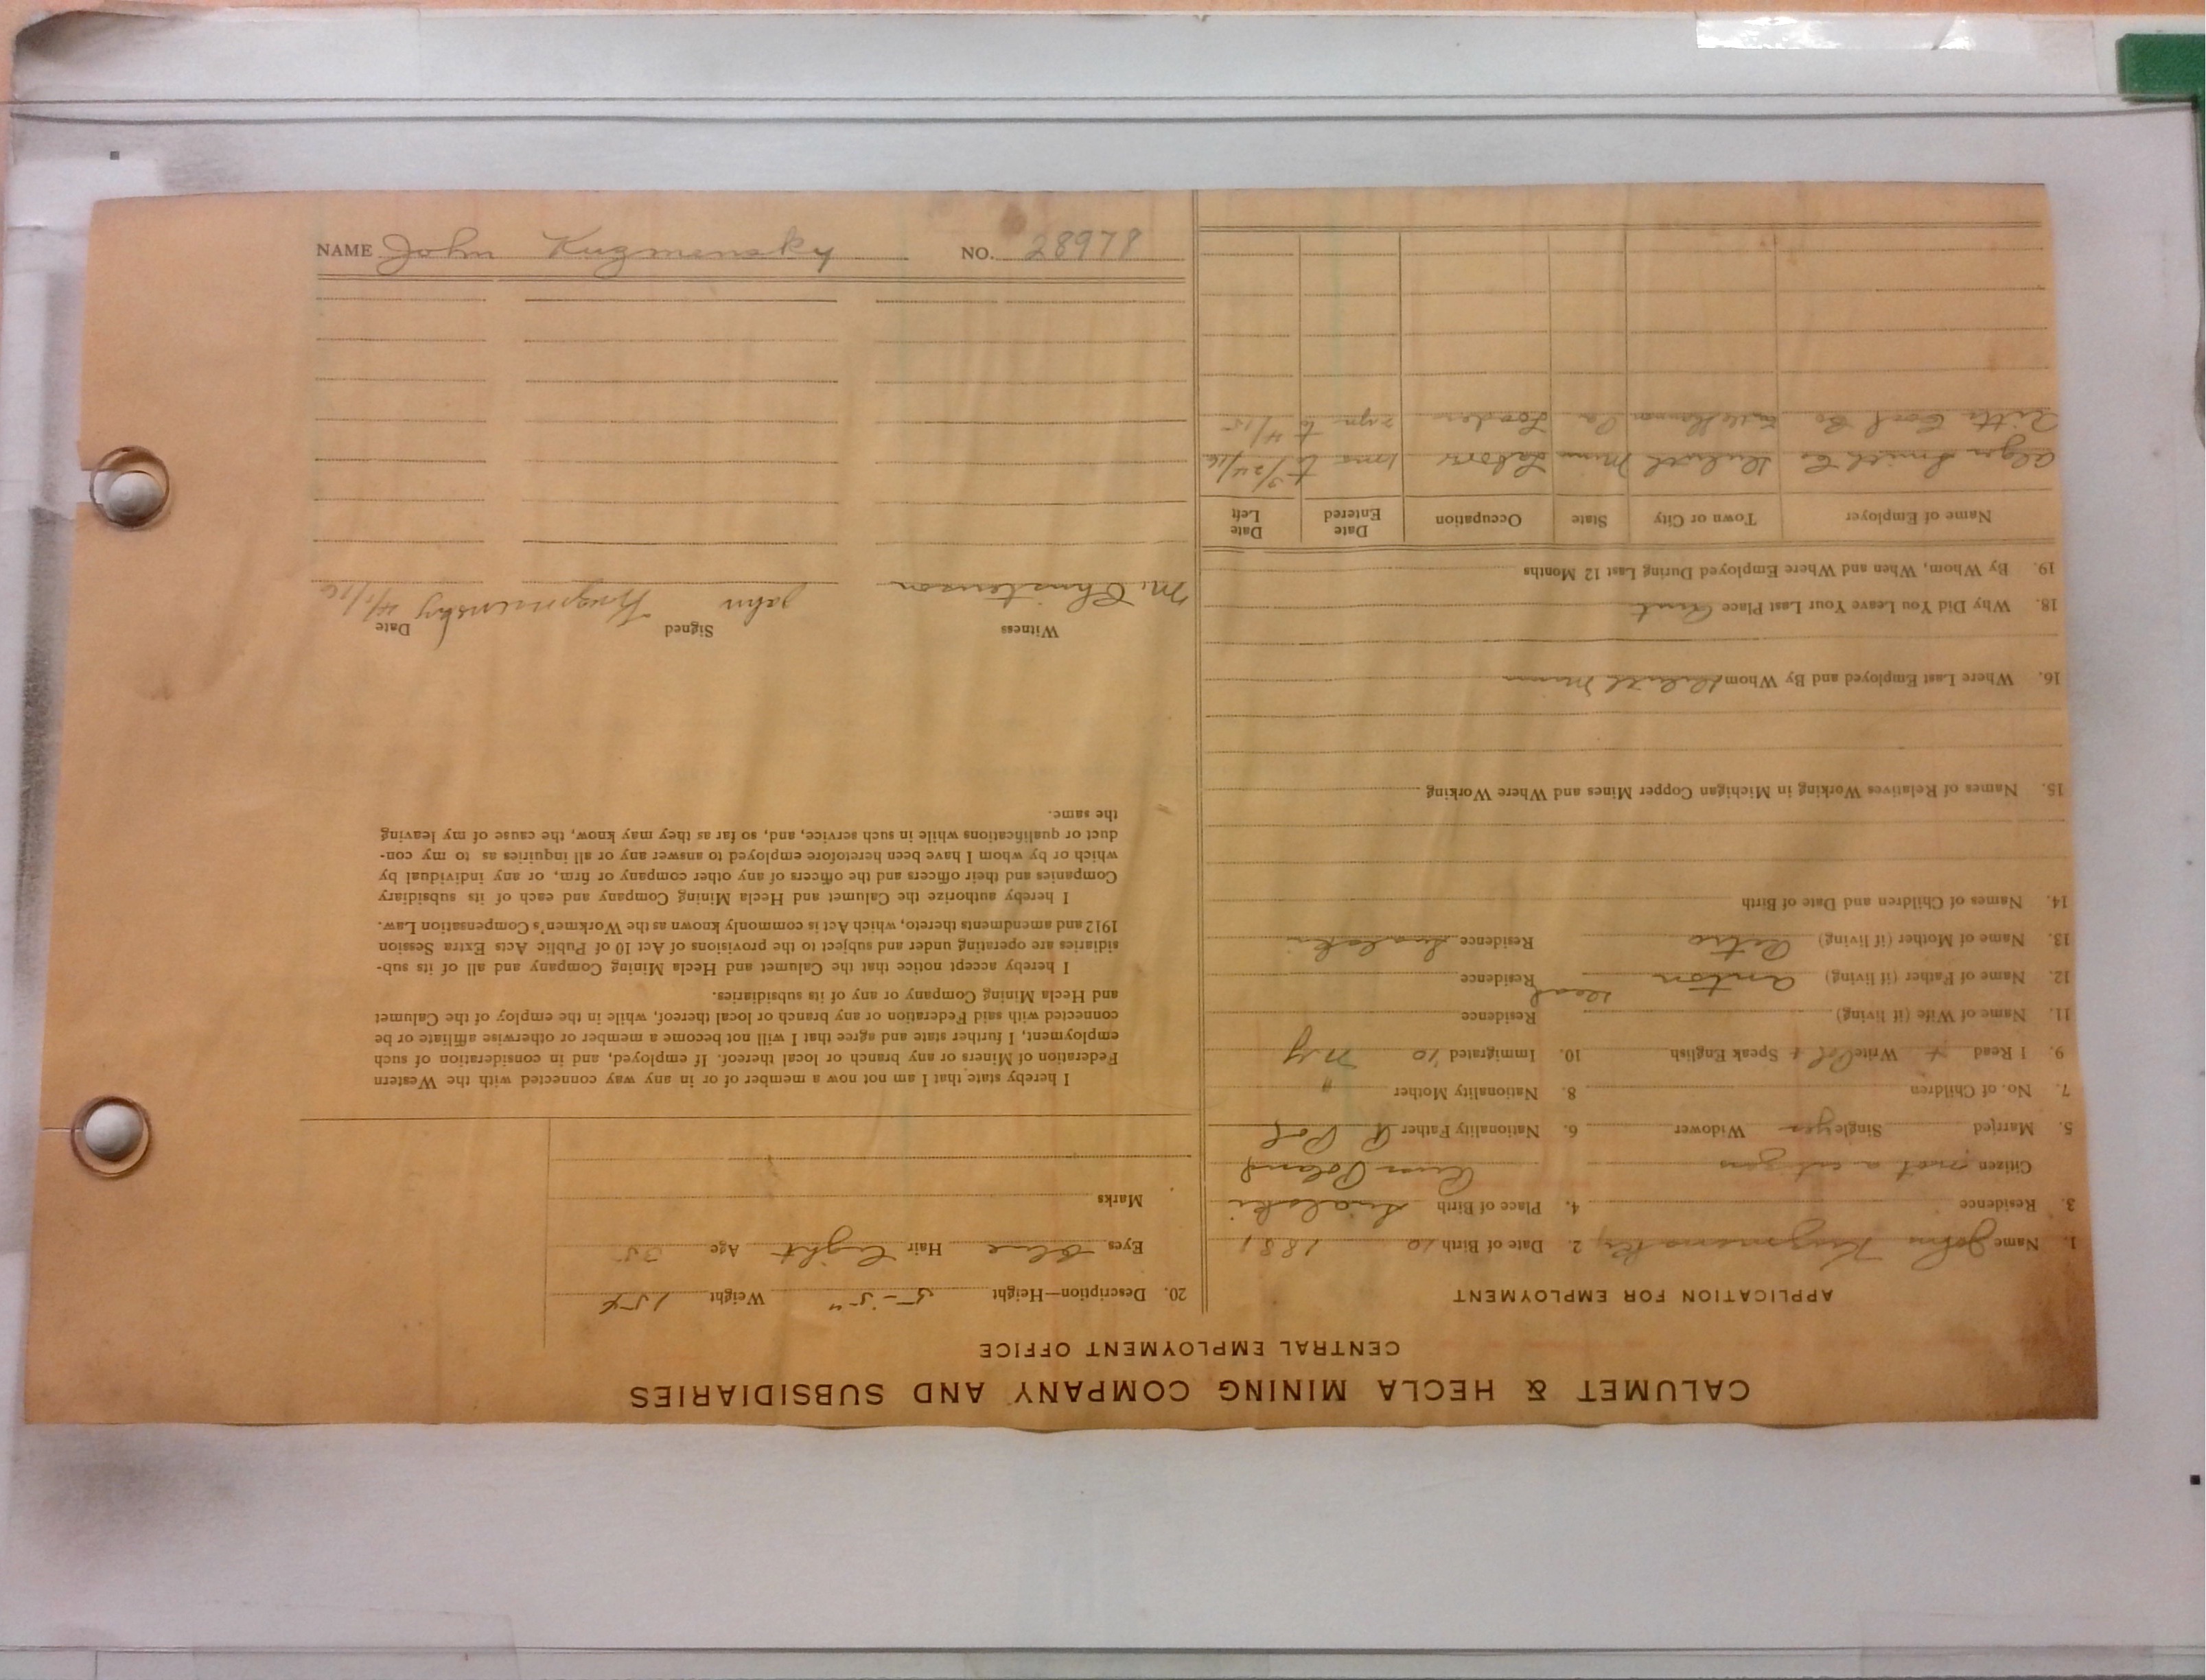 CALUMET & HECLA MINING COMPANY AND SUBSIDIARIES
CENTRAL EMPLOYMENT OFFICE
APPLICATION FOR EMPLOYMENT
1. Name John Kuzmensky 2. Date of Birth 10 1881
3. Residence 4. Place of Birth Sualski
Citizen not a citizen Poland
5. Married Single yes Widower 6. Nationality Father R Pol
7. No. of Children 8. Nationality Mother "
9. I Read + Write Pol + Speak English 10. Immigrated '10 NY
11. Name of Wife (if living) Residence
12. Name of Father (if living) Anton dead Residence
13. Name of Mother (if living) Residence Sualski
14. Names of Children and Date of Birth
15. Names of Relatives Working in Michigan Copper Mines and Where Working
16. Where Last Employed and By Whom
18. Why Did You Leave Your Last Place
19. By Whom, When and Where Employed During Last 12 Months
Name of Employer Town or City State Occupation Date Entered Date Left
Alger Smith Co Duluth Minn Labor to 3/24/16
Coal Co Pa Loader to 4/15
20. Description—Height 5-5" Weight 154
Eyes Blue Hair Light Age 35
Marks
I hereby state that I am not now a member of or in any way connected with the Western
Federation of Miners or any branch or local thereof. If employed, and in consideration of such
employment, I further state and agree that I will not become a member or otherwise affiliate or be
connected with said Federation or any branch or local thereof, while in the employ of the Calumet
and Hecla Mining Company or any of its subsidiaries.
I hereby accept notice that the Calumet and Hecla Mining Company and all of its sub-
sidiaries are operating under and subject to the provisions of Act 10 of Public Acts Extra Session
1912 and amendments thereto, which Act is commonly known as the Workmen's Compensation Law.
I hereby authorize the Calumet and Hecla Mining Company and each of its subsidiary
Companies and their officers and the officers of any other company or firm, or any individual by
which or by whom I have been heretofore employed to answer any or all inquiries as to my con-
duct or qualifications while in such service, and, so far as they may know, the cause of my leaving
the same.
Witness Signed Date
M. Christenson John Kuzmensky 4/1/16
NAME John Kuzmensky NO. 28978